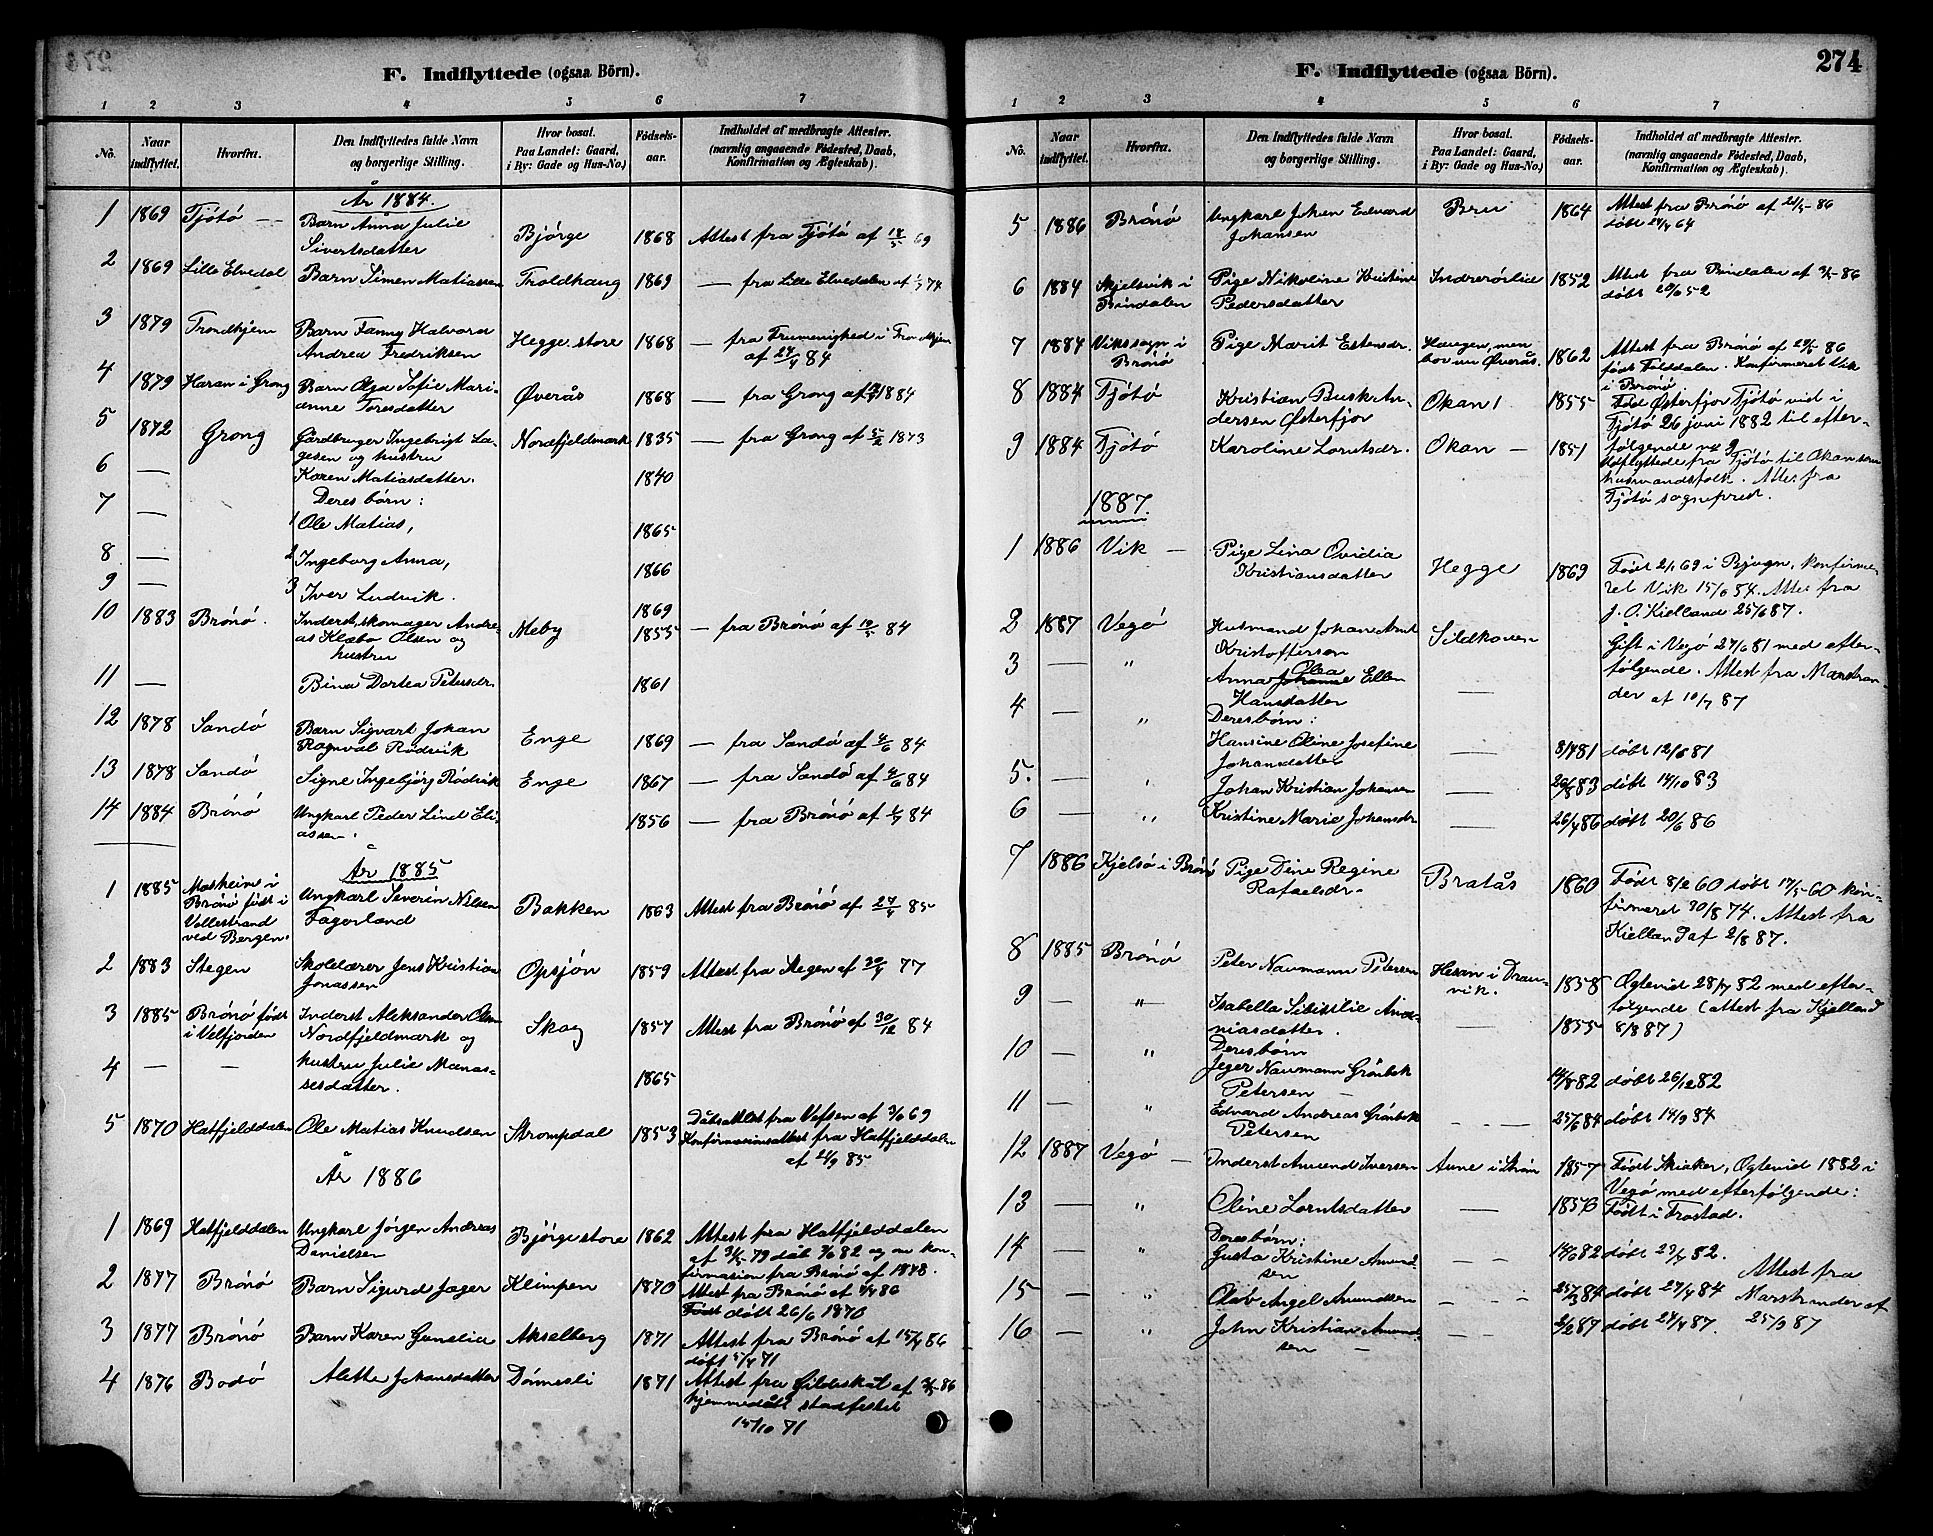 F. Indflyttede (ogsaa Börn).
1 2 3 4 5 6 7
No. Naar indflyttet. Hvorfra. Den Indflyttedes fulde Navn og borgerlige Stilling. Hvor bosat. Paa Landet: Gaard, i By: Gade og Hus-No.) Födsels-aar. Indholdet af medbragte Attester. (navnlig angaaende Födested, Daab, Konfirmation og Ægteskab).
År 1884.
1 1869 Tjötö Barn Anna Julie
Sivertsdatter Bjørge 1868 Attest fra Tjötö af 18/5 69
2 1869 Lille Elvedal Barn Simen Matiassen Troldhaug 1869 — fra Lille Elvedalen af
3 1879 Trondhjem Barn Fanny Halvora
Andrea Fredriksen Hegge store 1868 — fra Frumenighed i Trondhjem
af 24/4 84
4 1879 Haran i Grong Barn Olga Sofie Mari-
anne Toresdatter Øverås 1868 — fra Grong af 1884
5 1872 Grong Gårdbruger Ingebrigt La-
gesen og hustru Nordfjeldmark 1835 — fra Grong af 5/2 1873
6 — Karen Matiasdatter. 1840
Deres børn:
7 — 1 Ole Matias, 1865
8 — 2 Ingeborg Anna, 1866
9 — 3 Iver Ludvik. 1869
10 1883 Brönö. Inderst, skomager Andre-
as Klæbo Olsen og
hustru Meby 1855 — fra Brönö af 84
11 — Bina Dortea Petersdr. 1861
12 1878 Sandö Barn Sigvart Johan
Ragnval Rødvik Enge 1869 — fra Sandö af 4/6 84
13 1878 Sandö Signe Ingebjörg Rödvik Enge 1867 — fra Sandö af 4/6 84
14 1884 Brönö Ungkarl Peder Lind Eli-
assen. 1856 — fra Brönö af 84
År 1885
1 1885 Mosheim i
Brönö født i
Vollestrand
ved Bergen. Ungkarl Severin Nilsen
Fagerland Bakken 1863 Attest fra Brönö af 27/4 85
2 1883 Stegen Skolelærer Jens Kristian
Jonassen Opsjön 1859 Attest fra Stegen af 30/4 77
3 1885 Brönö født
i Velfjorden Inderst Aleksander Olsen
Nordfjeldmark og Skog 1857 Attest fra Brönö af 30/12 84
4 — — hustru Julie Manas-
sesdatter. 1865
5 1870 Hatfjelddalen Ole Matias Knudsen Strompdal 1853 Dåbsattest fra Vefsen af 69
Konfirmasionsattest fra Hatfjelddalen
af 24/9 85
År 1886
1 1869 Hatfjelddalen Ungkarl Jörgen Andreas
Danielsen Bjørge store 1862 Attest fra Hatfjelddalen
af 79 dåb 82 og om kon-
firmasion fra Brönö af 1878.
2 1877 Brönö Barn Sigurd Jager Klimpen 1870 Attest fra Brönö af 86
Født døbt 26/6 1870
3 1877 Brönö Barn Karen Gunelia Akselberg 1871 Attest fra Brönö af 15/4 86
døbt 5/4 71
4 1876 Bodö Alette Johansdatter Dönnesli 1871 Attest fra Gildeskål af 86
hjemmedåb stadfestet
15/10 71
274
F. Indflyttede (ogsaa Börn).
1 2 3 4 5 6 7
No. Naar indflyttet. Hvorfra. Den Indflyttedes fulde Navn og borgerlige Stilling. Hvor bosat. Paa Landet: Gaard, i By: Gade og Hus-No.) Födsels-aar. Indholdet af medbragte Attester. (navnlig angaaende Födested, Daab, Konfirmation og Ægteskab).
5 1886 Brönö Ungkarl Johan Edvard
Johansen Bru 1864 Attest fra Brönö af 86
døbt 24/4 64
6 1884 Skjelsvik i
Bindalen Pige Nikoline Kristine
Pedersdatter Indrerörlia 1852 Attest fra Bindalen af 86
døbt 20/6 52
7 1884 Vikssogn i
Brönö Pige Marit Estensdr. Haugen, men
bor nu Øverås. 1862 Attest fra Brönö af 86
født Folddalen. Konfirmeret Vik
i Brönö
8 1884 Tjötö Kristian Busk An-
dersen Østerfjor Okan 1 1855 Fød Østerfjor Tjötö vid i
Tjötö 26 juni 1882 til efter-
følgende no 9
9 1884 Tjötö Karoline Lorntsdr. Okan — 1851 Udflyttede fra Tjötö til Okan som
husmandsfolk. Attes fra
Tjötö sogneprest.
1887.
1 1886 Vik — Pige Lina Ovidia
Kristiansdatter Hegge 1869 Født 2/1 69 i Bjugn, konfirme-
ret Vik 15/6 84. Attes fra
J. O. Kielland 25/6 87.
2 1887 Vegö Husmand Johan Arnt
Kristofferson Sildhaven Gift i Vegö 27/6 81 med efter-
følgende. Attest fra Marstran-
der af 10/7 87
3 — " Anna Johanne Olea Ellen
Hansdatter —
Deresbørn:
4 — " Hansine Oline Josefine
Johansdatter — 8/4 81 døbt 12/6 81
5. — " Johan Kristian Johansen — 26/8 83 døbt 14/10 83
6 — " Kristine Marie Johansdr — 26/4 86 døbt 20/6 86
7 1886 Kjelsö i Brönö Pige Dine Regine
Rafaelsdr. Bratås 1860 Født 8/2 60 døbt 17/5 60 kon-
firmeret 30/8 74. Attest fra
Kielland af 2/8 87.
8 1885 Brönö Peter Naumann Petersen Heran i Drau-
vik. 1858 Ægtevid 28/7 82 med efter-
følgende (attest fra Kjelland
8/8 87)
9 — " Isabella Ana-
niasdatter. — 1855
Deresbørn
10 — " Jeger Naumann Grönbek
Petersen — 14/8 82 døbt 26/12 82
11 — " Edvard Andreas Grönbek
Petersen — 25/6 84 døbt 14/9 84
12 1887 Vegö — Inderst Amund Iversen Aune i 1857 Født Skiaker, Ægtevid 1882 i
Vegö med efterfølgende:
13 " Oline Lorntsdatter — 1853 Født i Frostad.
Deresbørn:
14 — " Gusta Kristine Amund-
sen — 14/6 82 døbt 29/7 82.
15 — " Olav Angel Amundsen — 25/3 84 døbt 27/4 84
16 — " John Kristian Amund-
sen — 2/2 87 døbt 24/4 87.
Attest fra
Marstrander af
25/9 87